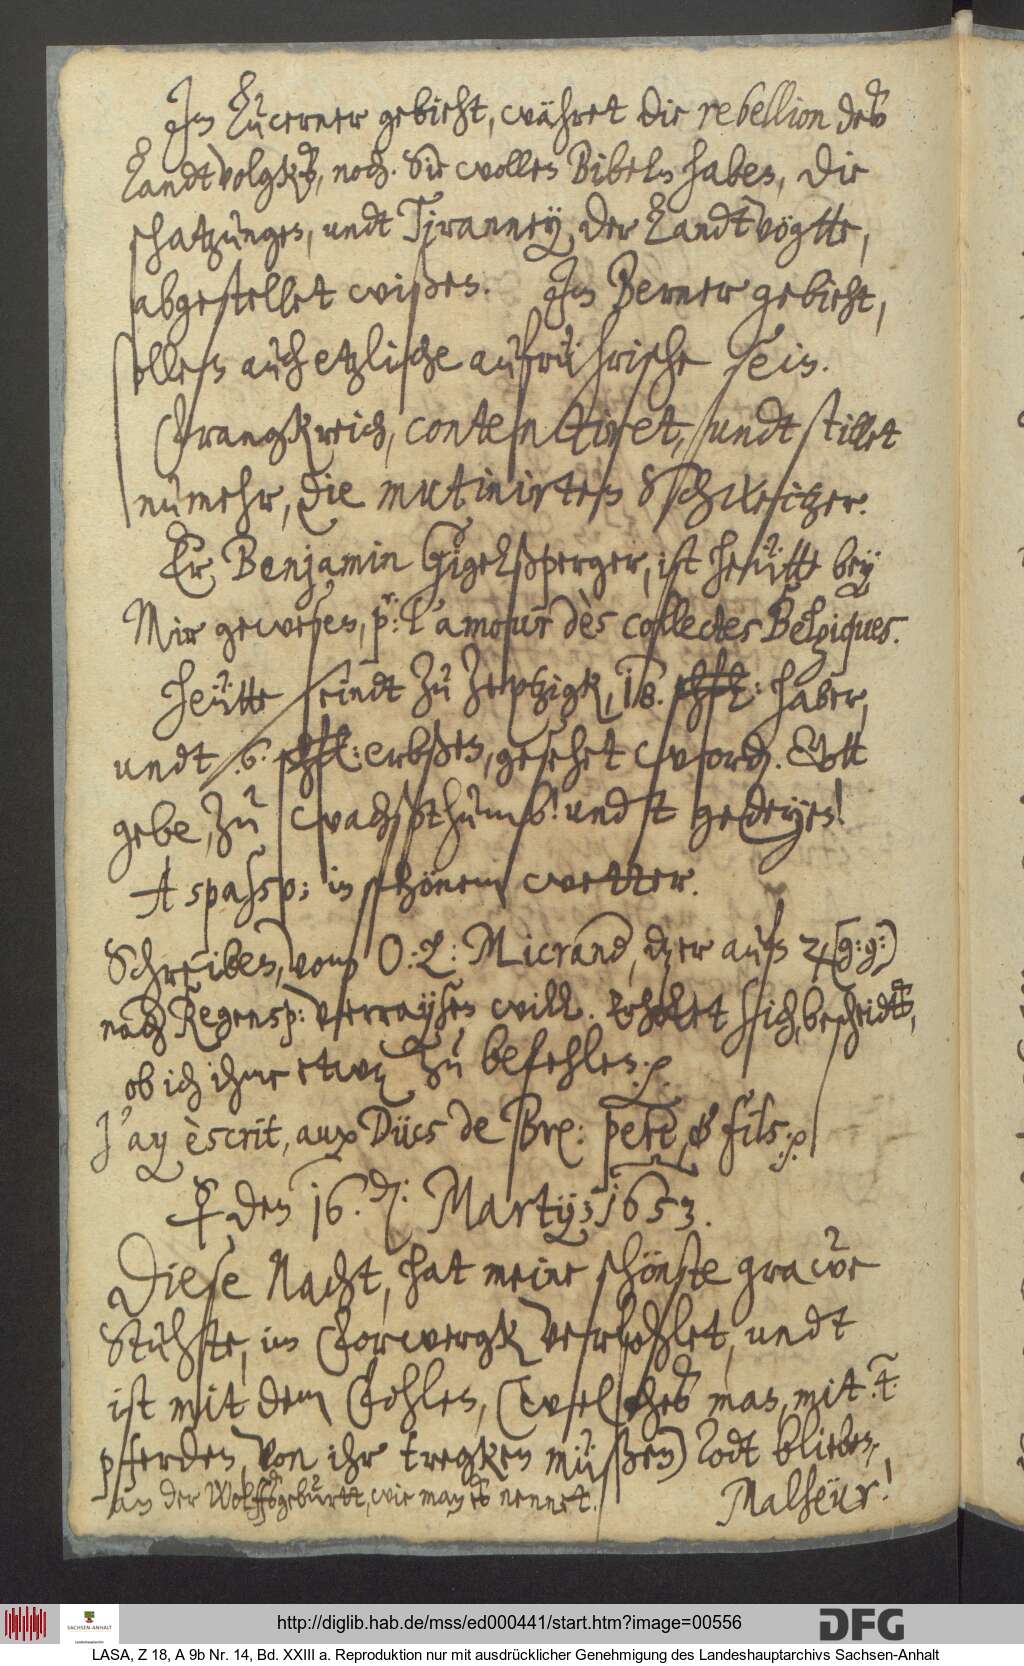 Im Lucerner gebieht, währet die rebellion deß
Landtvolgks, noch. Sie wollen Bibeln haben, die
schatzungen, undt Tyranney, der Landtvögtte,
abgestellet wißen. Im Berner gebieht,
sollen auch etzliche aufrührische sein.
Frangkreich, contentiret, undt stillet
numehr, die mutinirten Schweitzer.
Er Benjamin Gigelßperger, ist heütte bey
Mir gewesen, pour: l'amour dès collectes Belgiques.
Heütte seindt zu Zeptzigk, 18. schfl: haber,
undt 6. schfl: erbßen, gesehet word. Gott
gebe, zu wachßthumb! undt gedeyen!
A spasso; in schönem wetter.
Schreiben, vom O: L: Micrand, der aufs (g: g:)
nach Regensp: verraysen will. Erholet sich, bescheidts,
ob ich ihme etwaß zu befehlen. p
J'ay èscrit, aux Dücs de Br: perè, & fils: p
☿ den 16. Martij; 1653.
Diese Nacht, hat meine schönste grawe
Stuhtte, im Forwergk verfohlet, undt
ist mit dem Fohlen, (welches man, mit 4
pferden, von ihr trecken müßen) Todt blieben,
an der Wolffsgeburtt, wie man eß nennet. Malheür!
http://diglib.hab.de/mss/ed000441/start.htm?image=00556
SACHSEN-ANHALT
Landeshauptarchiv
DFG
LASA, Z 18, A 9b Nr. 14, Bd. XXIII a. Reproduktion nur mit ausdrücklicher Genehmigung des Landeshauptarchivs Sachsen-Anhalt